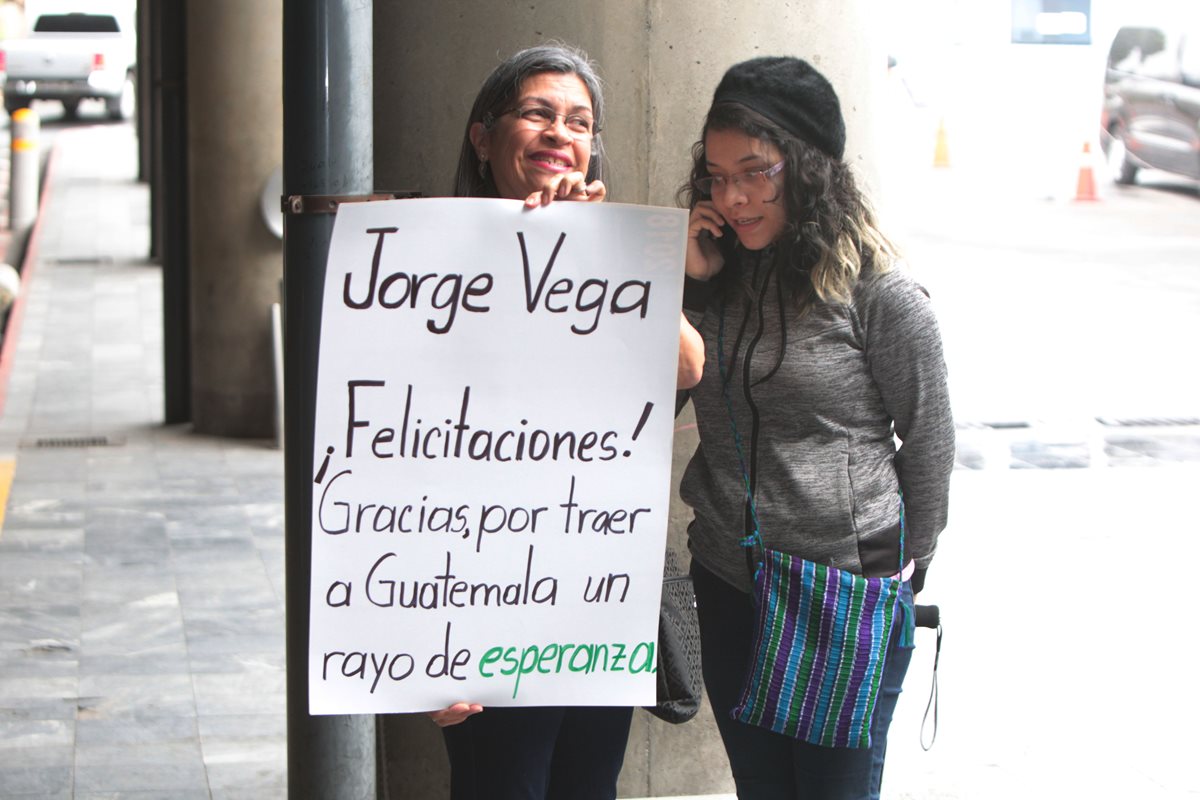 Jorge Vega
¡Felicitaciones!
Gracias, por traer
a Guatemala un
rayo de esperanza.